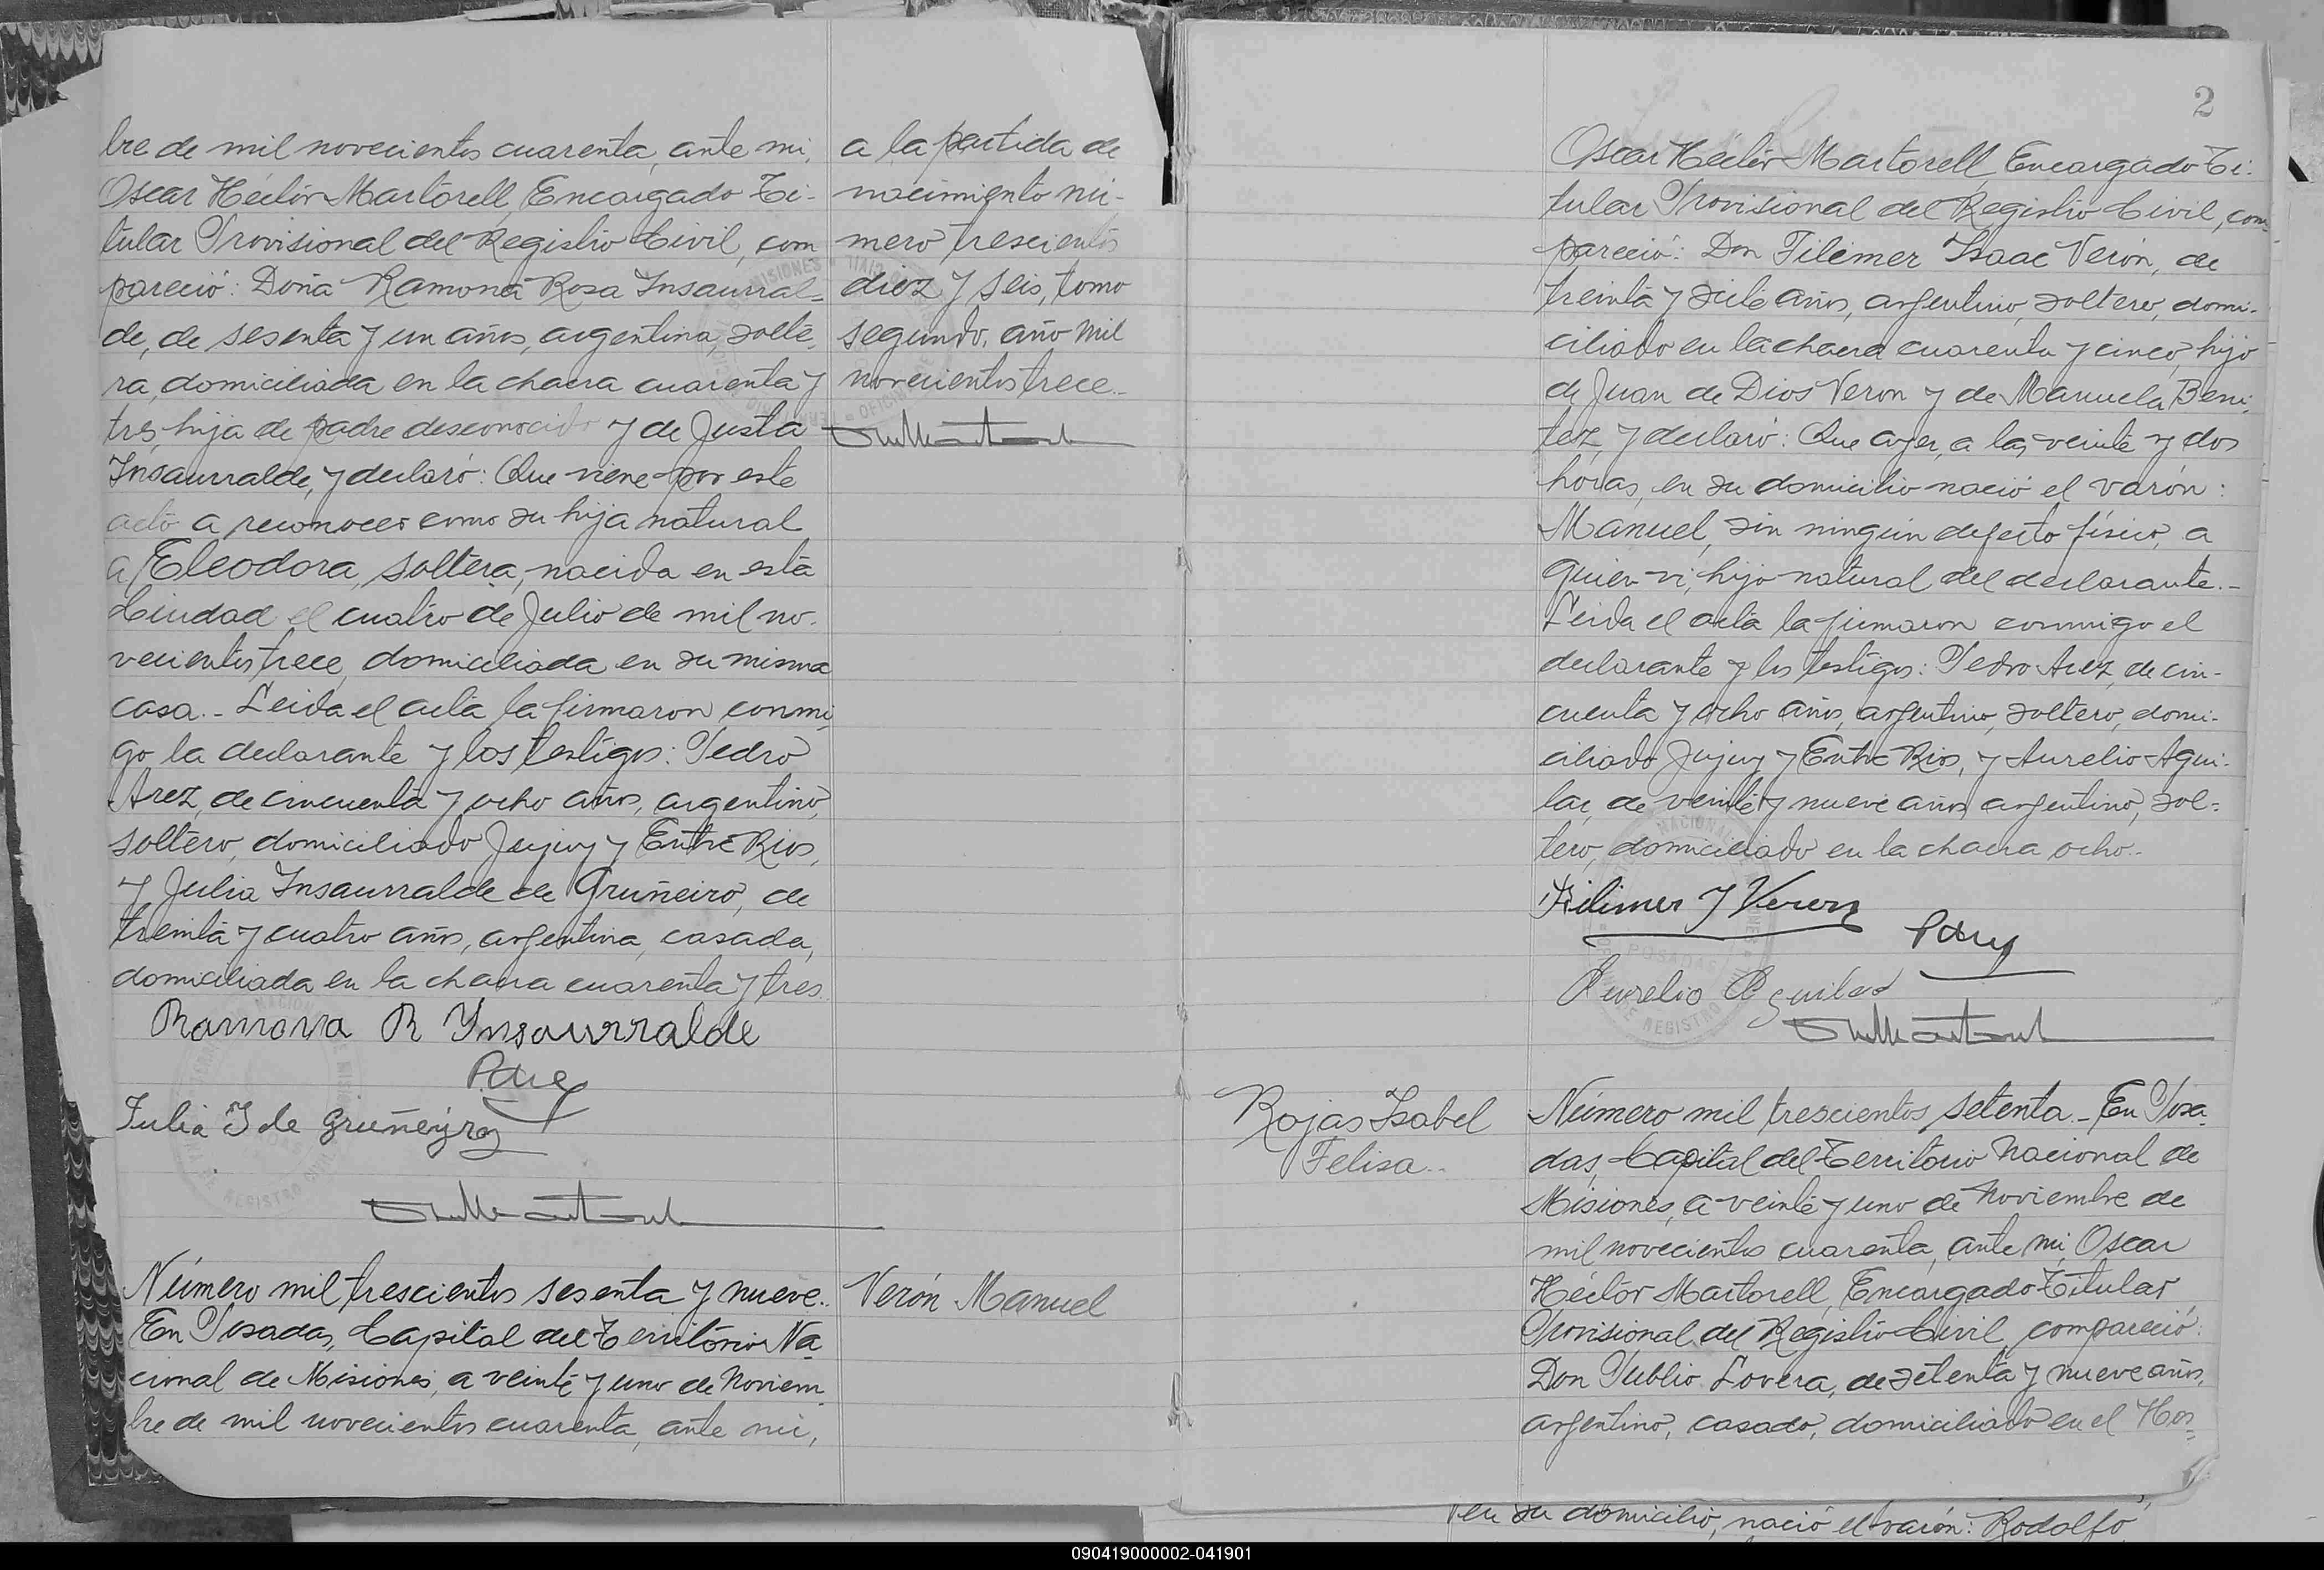 bre de mil novecientos cuarenta, ante mi,
Oscar Héctor Martorell, Encargado Ti-
tular Provisional del Registro Civil, com
pareció: Doña Ramona Rosa Insaurral-
de, de sesenta y un años, argentina, solte-
ra, domiciliada en la chacra cuarenta y
tres, hija de padre desconocido y de Justa
Insaurralde, y declaró: Que viene por este
acto a reconocer como su hija natural
a Eleodora, soltera, nacida en esta
Ciudad el cuatro de Julio de mil no-
vecientos trece, domiciliada en su misma
casa.- Leida el acta la firmaron conmi
go la declarante y los testigos: Pedro
Arez, de cincuenta y ocho años, argentino,
soltero, domiciliado Jujuy y Entre Rios,
y Julia Insaurralde de Gruñeiro, de
treinta y cuatro años, argentina, casada,
domiciliada en la chacra cuarenta y tres.
Ramona R Ynsaurralde
Julia I de Gruñeyro
Número mil trescientos sesenta y nueve.-
En Posadas, Capital del Territorio Na-
cional de Misiones, a veinte y uno de Noviem
bre de mil novecientos cuarenta, ante mi,
a la partida de
nacimiento nú-
mero trescientos
diez y seis, tomo
segundo, año mil
novecientos trece.-
Verón Manuel
2
Oscar Héctor Martorell, Encargado Ti-
tular Provisional del Registro Civil, com-
pareció: Don Filemer Isaac Verón, de
treinta y siete años, argentino, soltero, domi-
ciliado en la chacra cuarenta y cinco, hijo
de Juan de Dios Veron y de Manuela Beni-
tez, y declaró: Que ayer, a las veinte y dos
horas, en su domicilio nació el varón:
Manuel, sin ningún defecto físico, a
quien vi, hijo natural del declarante.-
Leida el acta la firmaron conmigo el
declarante y los testigos: Pedro Arez, de cin-
cuenta y ocho años, argentino, soltero, domi-
ciliado Jujuy y Entre Rios, y Aurelio Agui-
lar, de veinte y nueve años, argentino, sol-
tero, domiciliado en la chacra ocho.-
Filimer Y Veron
Aurelio Aguilar
Rojas Isabel
Felisa.-
Número mil trescientos setenta.- En Posa-
das, Capital del Territorio Nacional de
Misiones, a veinte y uno de Noviembre de
mil novecientos cuarenta, ante mi, Oscar
Héctor Martorell, Encargado Titular
Provisional del Registro Civil, compareció:
Don Publio Lovera, de setenta y nueve años,
argentino, casado, domiciliado en el Hos-
en su domicilio, nació el varón: Rodolfo,
090419000002-041901